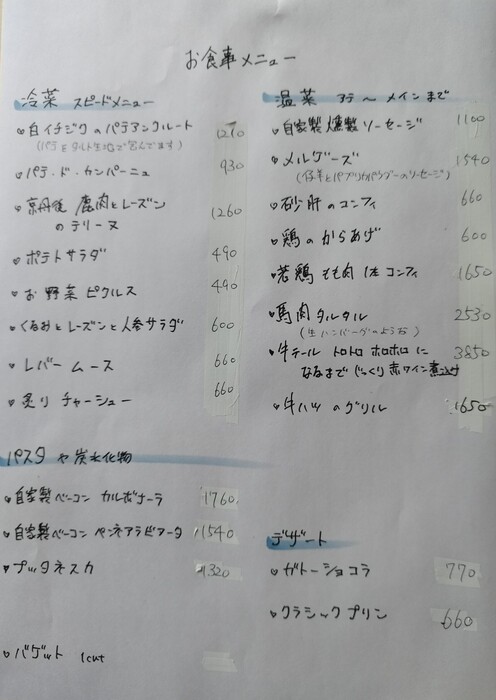 お食事メニュー
冷菜 スピードメニュー
白イチジクのパテアンクルート 1210
(パテをタルト生地で包んでます)
パテ・ド・カンパーニュ 930
京丹後 鹿肉とレーズン
のテリーヌ 1260
ポテトサラダ 490
お野菜ピクルス 490
くるみとレーズンと人参サラダ 600
レバームース 660
炙りチャーシュー 660
パスタや炭水化物
自家製ベーコン カルボナーラ 1760
自家製ベーコン ペンネアラビアータ 1540
プッタネスカ 1320
バゲット 1cut
温菜 アテ〜メインまで
自家製燻製ソーセージ 1100
メルゲーズ 1540
(仔羊とパプリカパウダーのソーセージ)
砂肝のコンフィ 660
鶏のからあげ 600
若鶏もも肉1本コンフィ 1650
馬肉タルタル 2530
(生ハンバーグのような)
牛テール トロトロ ホロホロに 3850
なるまで じっくり赤ワイン煮込み
牛ハツのグリル 1650
デザート
ガトーショコラ 770
クラシックプリン 660